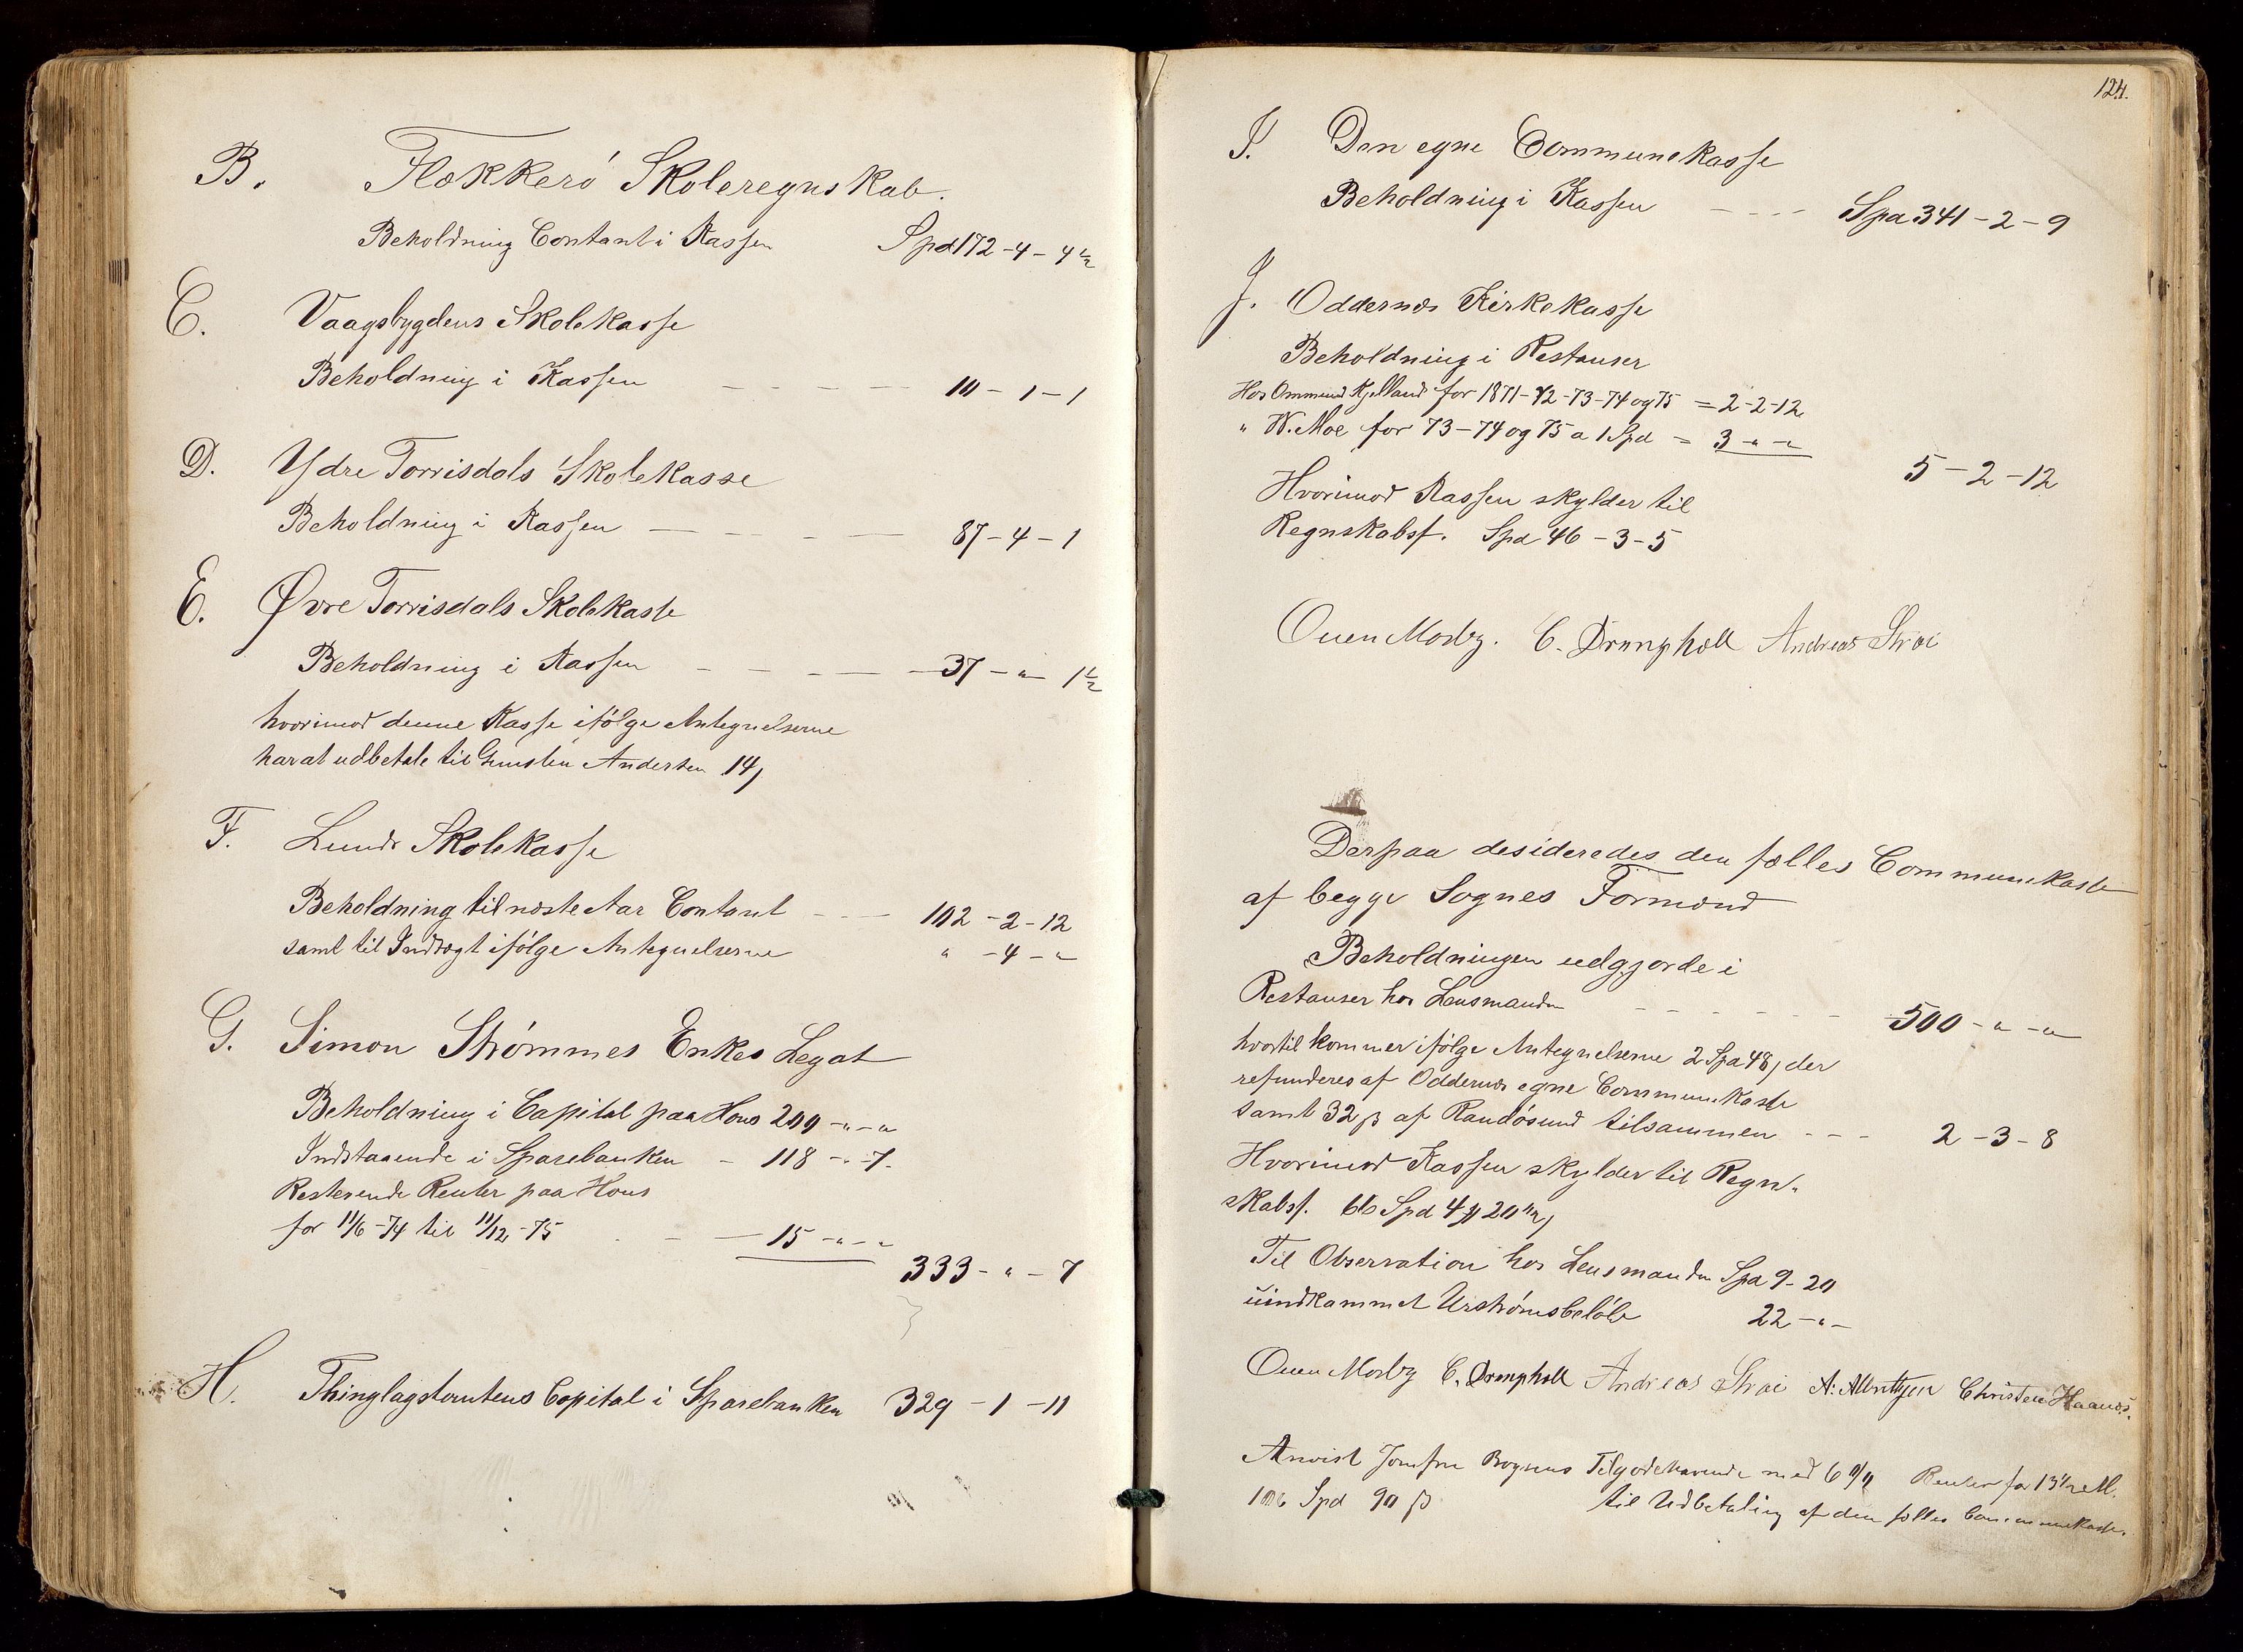 B. Flækkerø Skoleregnskab.
Beholdning Contant i Kassen Spd 172-4-4½
C. Vaagsbygdens Skolekasse
Beholdning i Kassen - - - - - 10-1-1
D. Ydre Torrisdals Skolekasse
Beholdning i Kassen - - - - - 87-4-1
E. Øvre Torrisdals Skolekasse
Beholdning i Kassen - - - - - 37-"-1½
hvorimod denne Kasse ifølge Antegnelserne
har at udbetale til Gunsten Andersen 14
F. Lunds Skolekasse
Beholdning til næste Aar Contant - - - 102-2-12
samt til Indtægt ifølge Antegnelserne "-4-"
G. Simon Strømmes Enkes Legat
Beholdning i Capital paa Hous 200-"-"
Indstaaende i Sparebanken - 118-"-7.
Resterende Renter paa Hous
for 11/6-74 til 11/12-75 - - - 15-"-"
333-"-7
H. Thinglagstomtens Capital i Sparebanken 329-1-11
124.
I. Den egne Communekasse
Beholdning i Kassen - - - - Spd 341-2-9
J. Oddernæs Kirkekasse
Beholdning i Restanser
Hos Ommund Kjelland for 1871-72-73-74 og 75 = 2-2-12
" W. Moe for 73-74 og 75 a 1 Spd = 3-"-"
5-2-12
Hvorimod Kassen skylder til
Regnskabsf. Spd 46-3-5
Ouen Mosby. C. Drangholt Andreas Strai
Derpaa desideredes den fælles Communekasse
af begge Sognes Formænd
Beholdningen udgjorde i
Restanser hos Lensmanden - - - - - - 500-"-"
hvortil kommer ifølge Antegnelserne 2 Spd 48, der
refunderes af Oddernæs egne Communekasse
samt 32 ß af Randøsund tilsammen - - - 2-3-8
Hvorimod Kassen skylder til Regn-
skabsf. 66 Spd 4 20½
Til Observation hos Lensmanden Spd 9-20
uindkommet Udstrømsbeløb 22-"-
Ouen Mosby C. Drangholt Andreas Strai A: Albretsen Christen Haanæs.
Anvist Jomfru Tilgodehavende med 6 % Renter for 13½ M.
106 Spd 90 ß til Udbetaling af den fælles Communekasse.